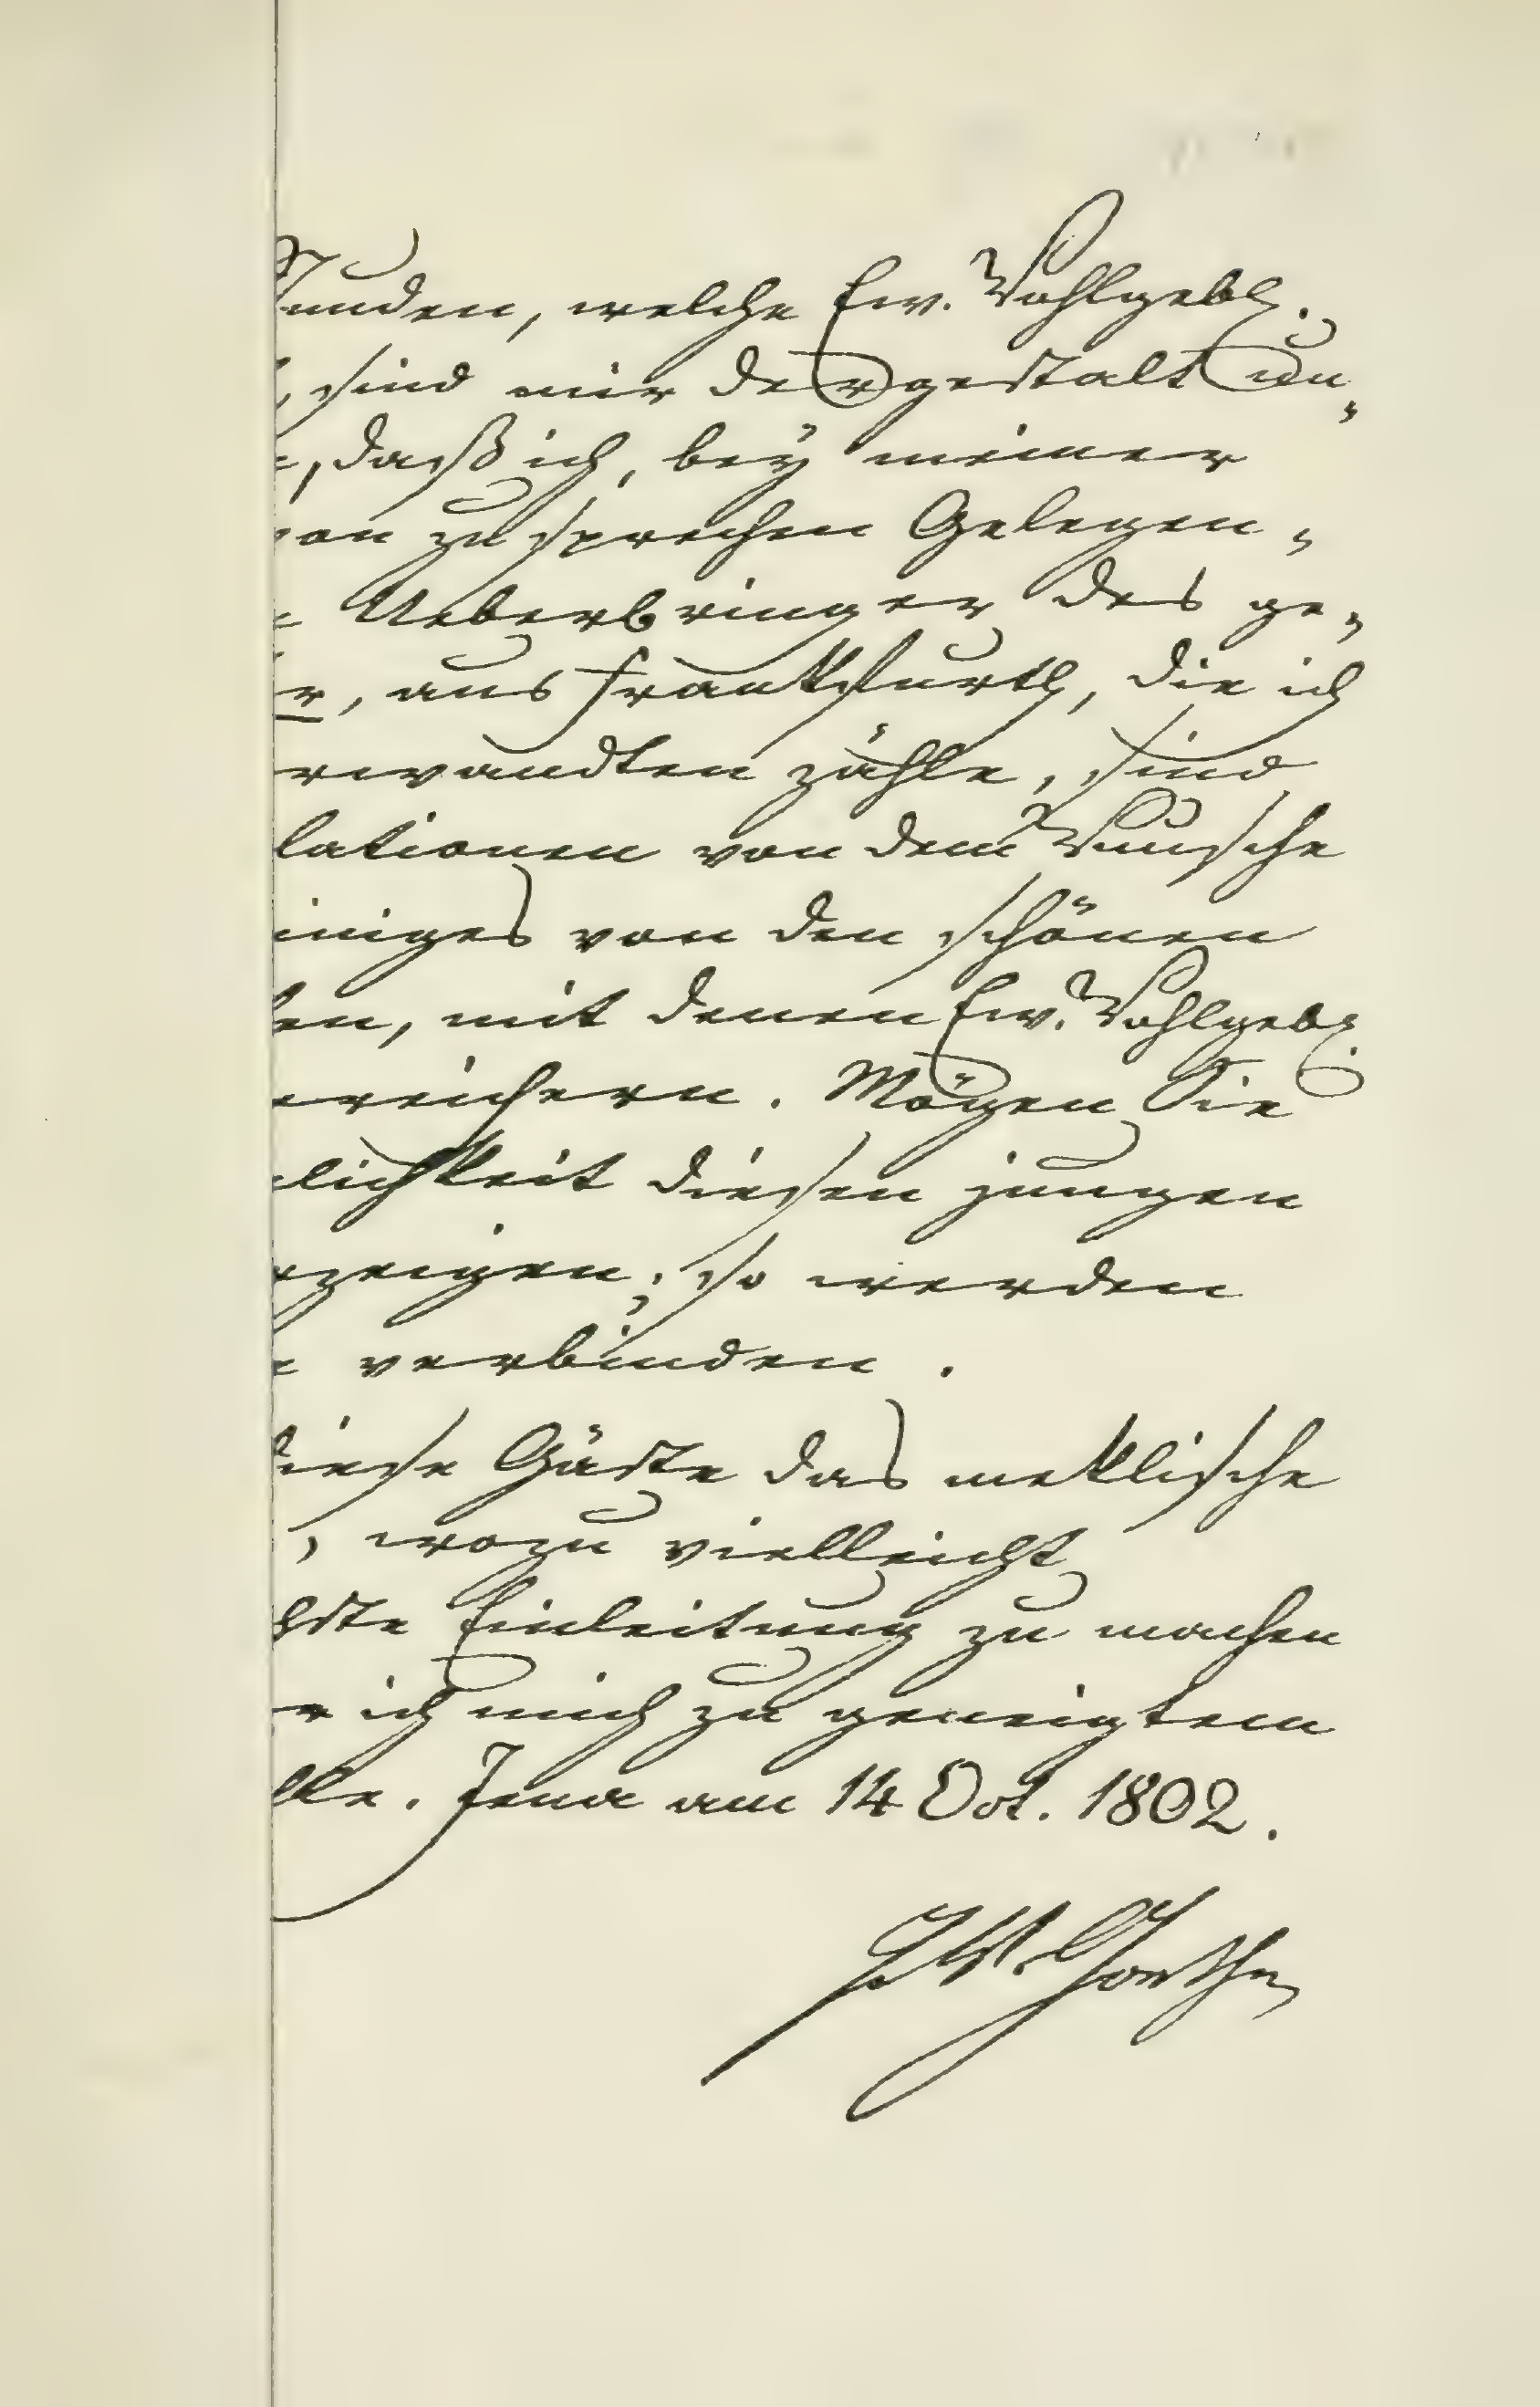 Stunden, welche Ew. Wohlgebh.
, sind mir dergestalt un,
, daß ich, bey meiner
von zu sprechen Gelegen,
Ueberbringer des ge,
r, aus Frankfurth, die ich
rwandten zähle, sind
lationen von dem Wunsche
iniges von den schönen
len, mit denen Ew. Wohlgeb.
ereichern. Mögen Sie
lichkeit diesen jungen
rzeigen; so werden
e verbinden.
diese Gäste das meklische
, wozu vielleicht
chste Einleitung zu machen
r ich mich zu geneigtem
hle. Jena am 14 Oct. 1802.
J. W. Goethe